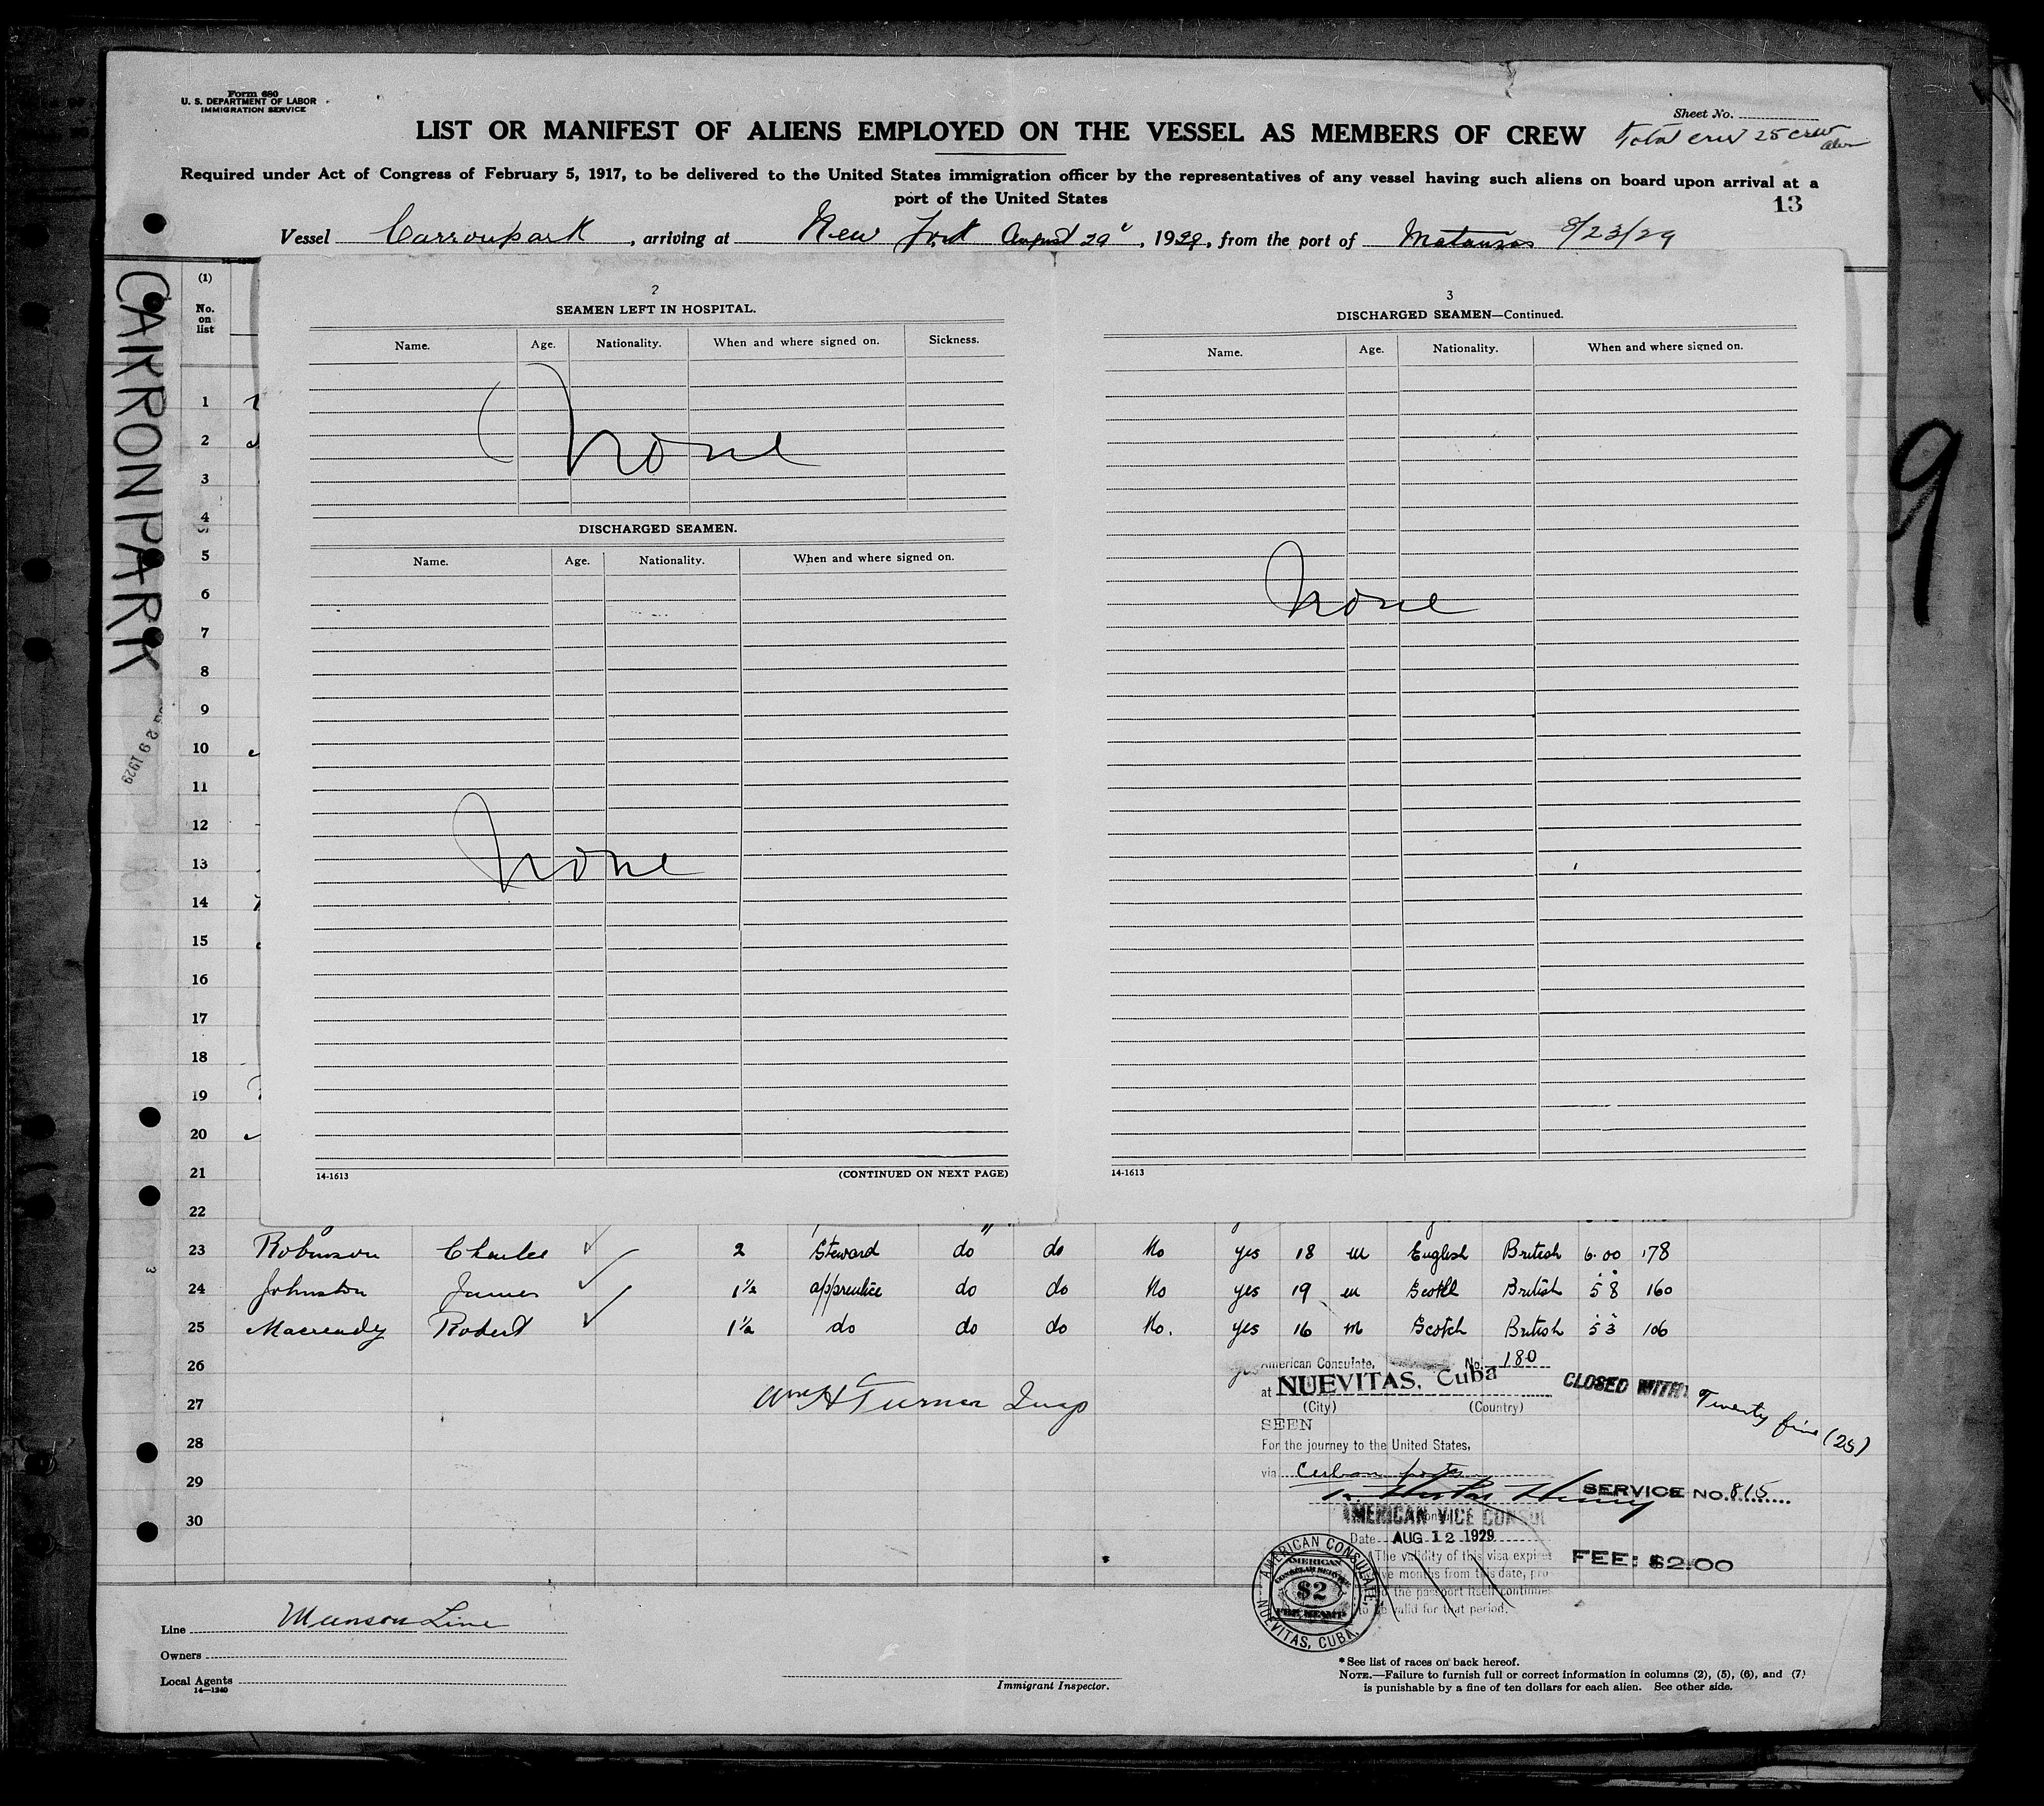 Form 680
U. S. DEPARTMENT OF LABOR
IMMIGRATION SERVICE
Sheet No.
LIST OR MANIFEST OF ALIENS EMPLOYED ON THE VESSEL AS MEMBERS OF CREW
Total crew 25 crew
Required under Act of Congress of February 5, 1917, to be delivered to the United States immigration officer by the representatives of any vessel having such aliens on board upon arrival at a
port of the United States
13
Vessel Carronpark, arriving at New York August 29, 1929, from the port of Matanzas 8/23/29
CARRONPARK
29 1929
9
(1)
No.
on
list
1
2
3
4
5
6
7
8
9
10
11
12
13
14
15
16
17
18
19
20
21
22
2
SEAMEN LEFT IN HOSPITAL.
Name. Age. Nationality. When and where signed on. Sickness.
None
DISCHARGED SEAMEN.
Name. Age. Nationality. When and where signed on.
None
14-1613 (CONTINUED ON NEXT PAGE)
3
DISCHARGED SEAMEN—Continued.
Name. Age. Nationality. When and where signed on.
None
14-1613
23 Robinson Charles 2 Steward do do No yes 18 m English British 6.00 178
24 Johnston James 1½ apprentice do do No yes 19 m Scotch British 5 8 160
25 Macready Robert 1½ do do do No. yes 16 m Scotch British 5 3 106
26
27
28
29
30
Wm H Turner
American Consulate, No. 180
at NUEVITAS, Cuba
(City) (Country)
CLOSED WITH Twenty five (25)
SEEN
For the journey to the United States,
via Cuban ports
SERVICE NO. 815
AMERICAN VICE CONSUL
Date AUG 12 1929
The validity of this visa expires
months from this date, pro
the passport itself continues
to be valid for that period.
FEE: $2.00
AMERICAN CONSULATE, NUEVITAS, CUBA.
AMERICAN
CONSULAR SERVICE
$2
FEE STAMP
Line Munson Line
Owners
Local Agents
14—1240
Immigrant Inspector.
* See list of races on back hereof.
NOTE.—Failure to furnish full or correct information in columns (2), (5), (6), and (7)
is punishable by a fine of ten dollars for each alien. See other side.